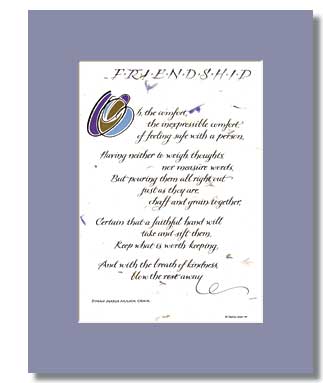 F·R·I·E·N·D·S·H·I·P
Oh, the comfort,
the inexpressible comfort
of feeling safe with a person,
Having neither to weigh thoughts
nor measure words,
But pouring them all right out
just as they are,
chaff and grain together,
Certain that a faithful hand will
take and sift them,
Keep what is worth keeping,
And with the breath of kindness
blow the rest away
DINAH MARIA MULOCK CRAIK